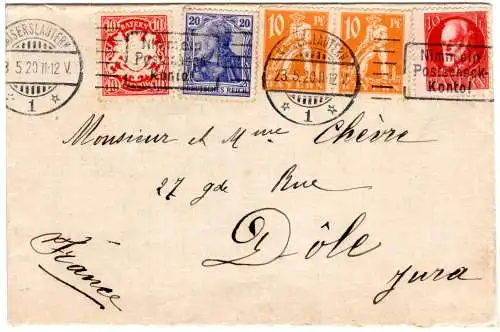 KAISERSLAUTERN
23.5.20 11-12 V.
1
BAYERN
10
10
20
20
DEUTSCHES REICH
Nimm ein
Postscheck-
Konto!
10 Pf
BAYERN
KAISERSLAUTERN
23.5.20 11-12 V.
1
10 Pf
BAYERN
10
Nimm ein
Postscheck-
Konto!
Monsieur et Mme Chèvre
27 gde Rue
Dôle
France
Jura